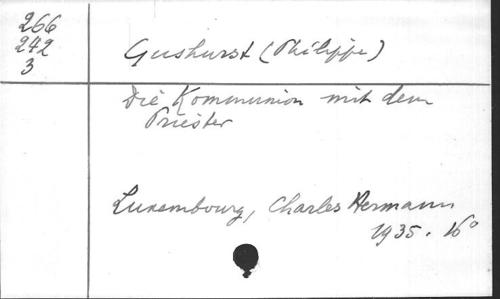 266
242
3
Gushurst (Philippe)
Die Kommunion mit dem
Priester
Luxembourg, Charles Hermann
1935. 16°